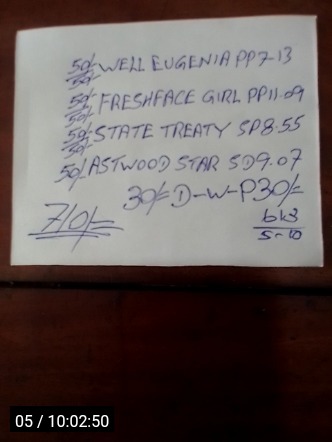 50/- WELL EUGENIA PP 7.13
50
50/- FRESHFACE GIRL PP 11.09
50/
50/- STATE TREATY SP 8.55
50/-
50/ ASTWOOD STAR SD 9.07
30/= D-W-P 30/=
710/=
5-10
05 / 10:02:50